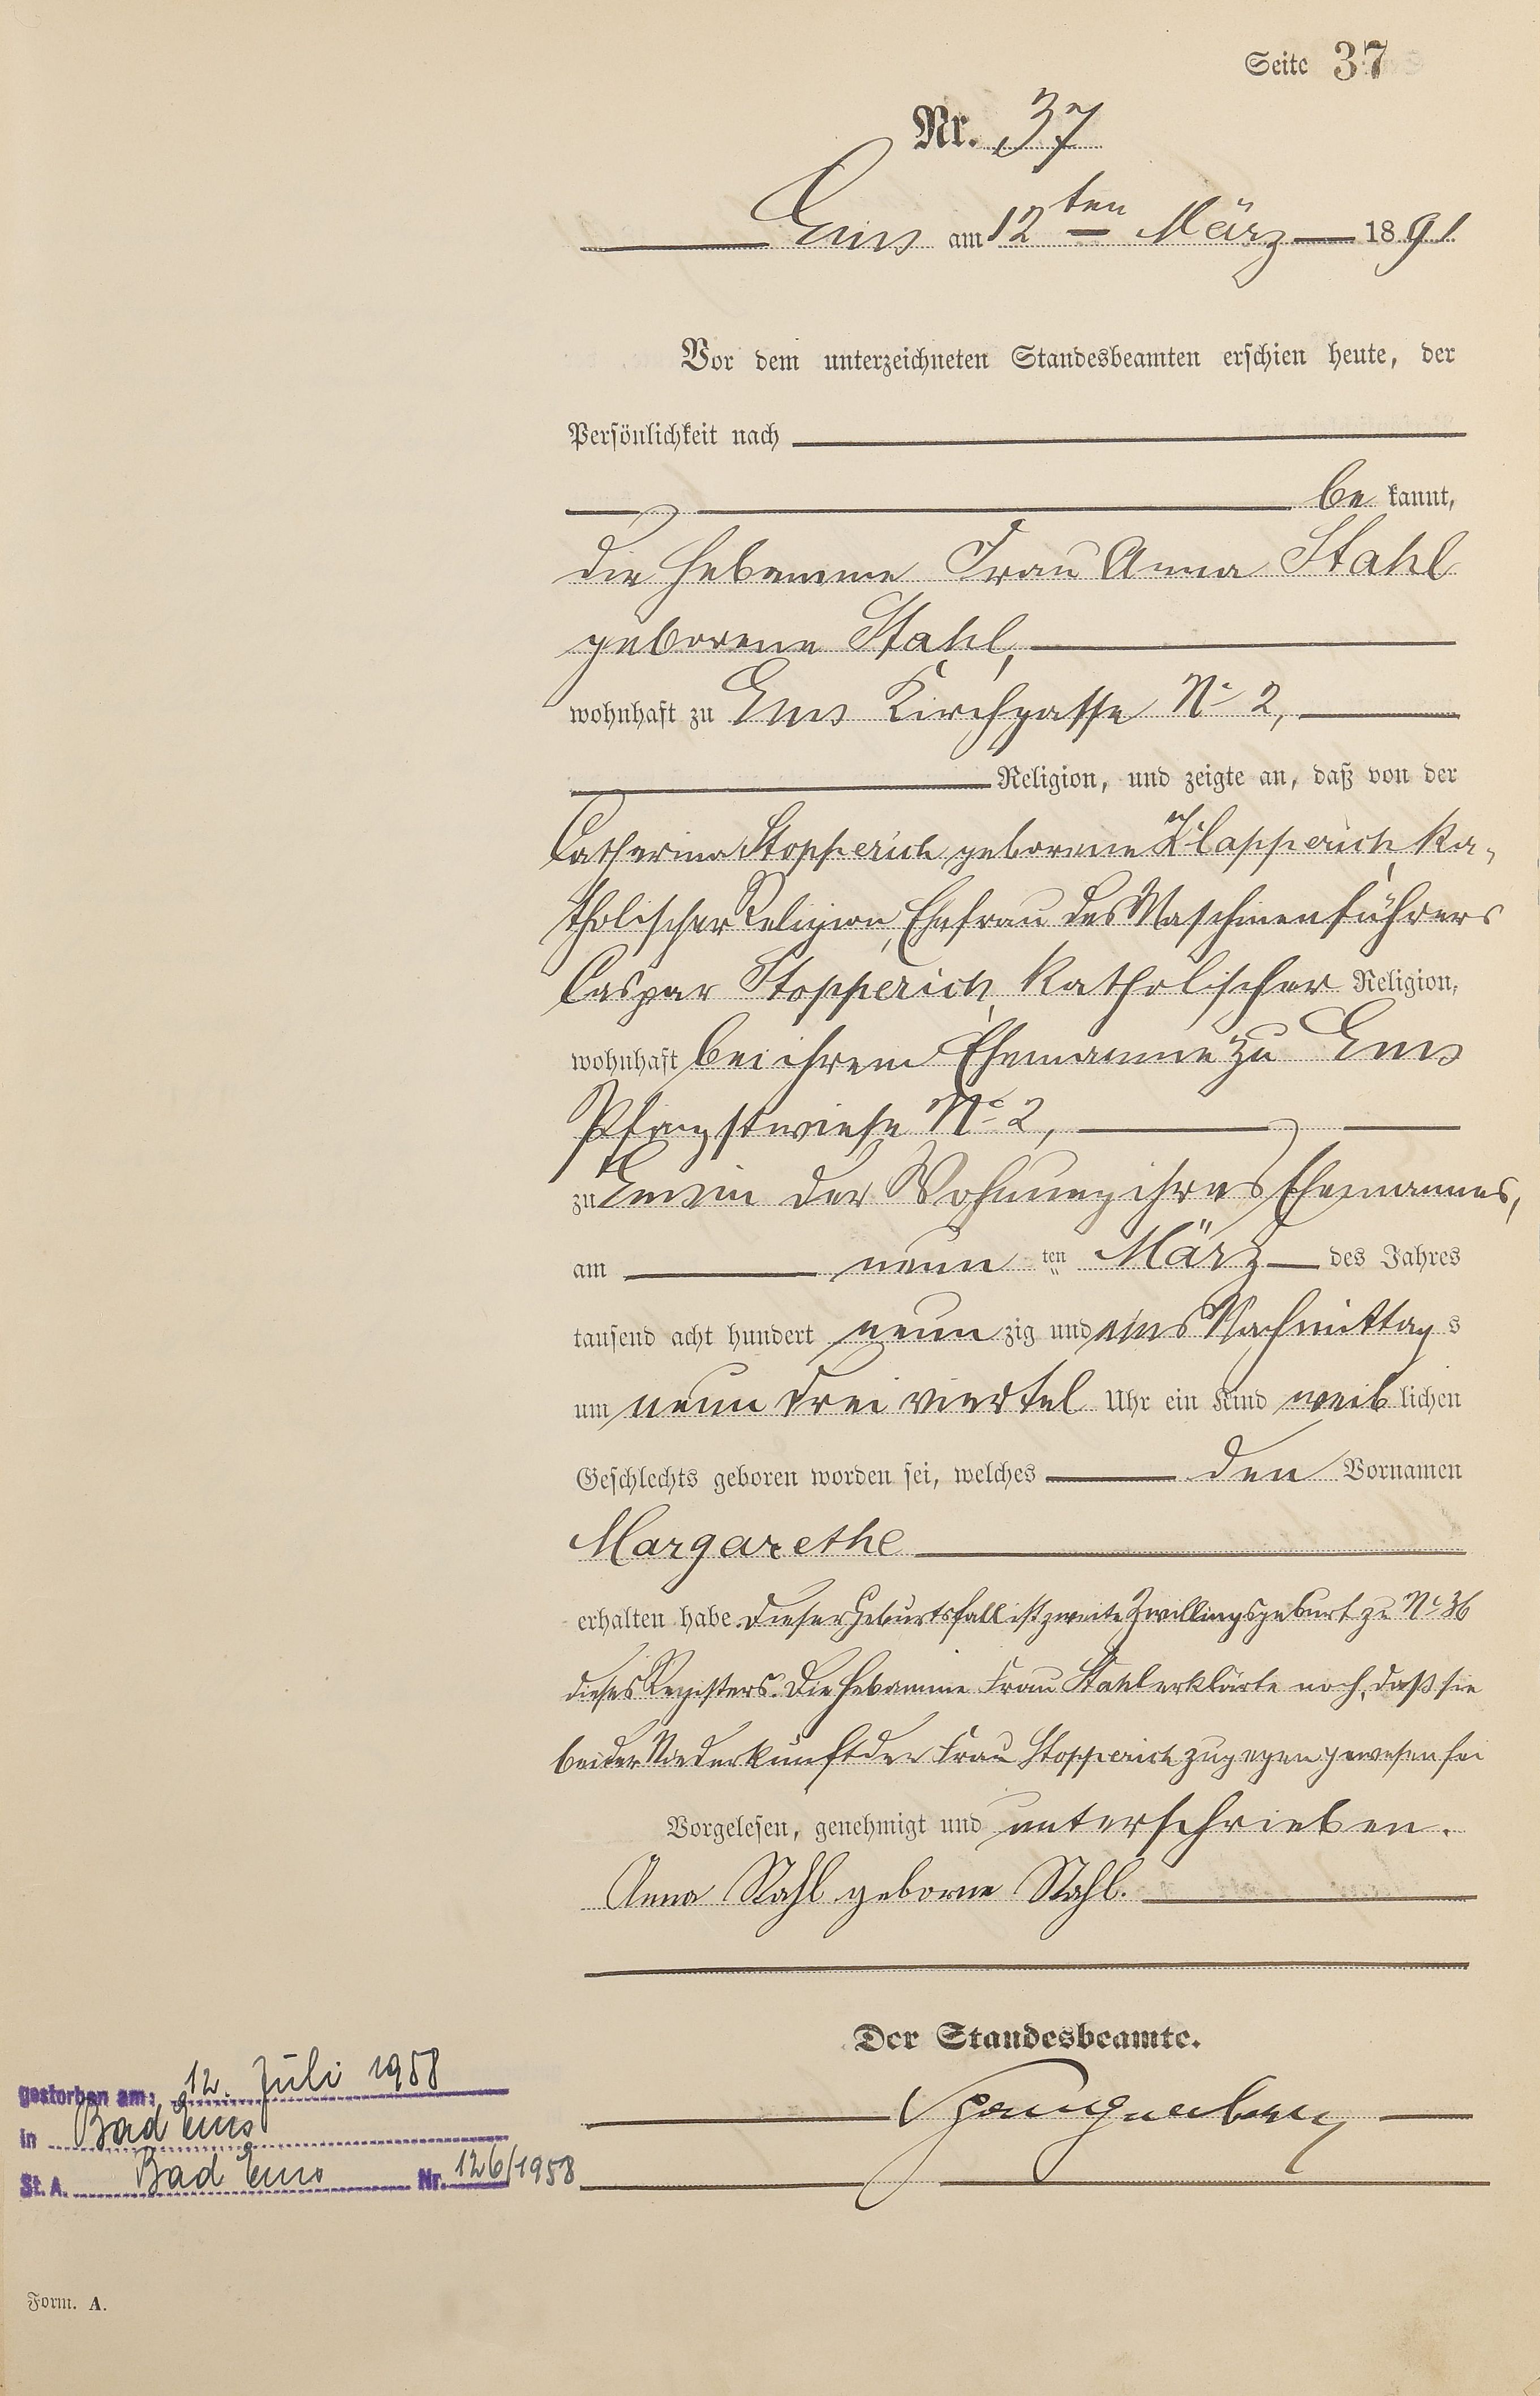 Seite 37
Nr. 37
Ems am 12ten März 1891
Vor dem unterzeichneten Standesbeamten erschien heute, der
Persönlichkeit nach
be kannt,
die Hebamme Frau Anna Stahl
geborene Stahl,
wohnhaft zu Ems Kirchgasse No 2,
Religion, und zeigte an, daß von der
Catharina Stopperich geborene Klapperich, ka-
tholischer Religion, Ehefrau des Maschinenführers
Caspar Stopperich, katholischer Religion,
wohnhaft bei ihrem Ehemanne zu Ems
Pfingstwiese No 2,
zu Ems in der Wohnung ihres Ehemannes,
am neun ten März des Jahres
tausend acht hundert neun zig und eins Nachmittag s
um neun drei viertel Uhr ein Kind weib lichen
Geschlechts geboren worden sei, welches den Vornamen
Margarethe
erhalten habe. Dieser Geburtsfall ist zweite Zwillingsgeburt zu No 36
dieses Registers. Die Hebamme Frau Stahl erklärte noch, daß sie
bei der Niederkunft der Frau Stopperich zugegen gewesen sei
Vorgelesen, genehmigt und unterschrieben.
Anna Stahl geborne Stahl.
Der Standesbeamte.
Spangenberg
gestorben am: 12. Juli 1958
in Bad Ems
St. A. Bad Ems Nr. 126/1958
Form. A.